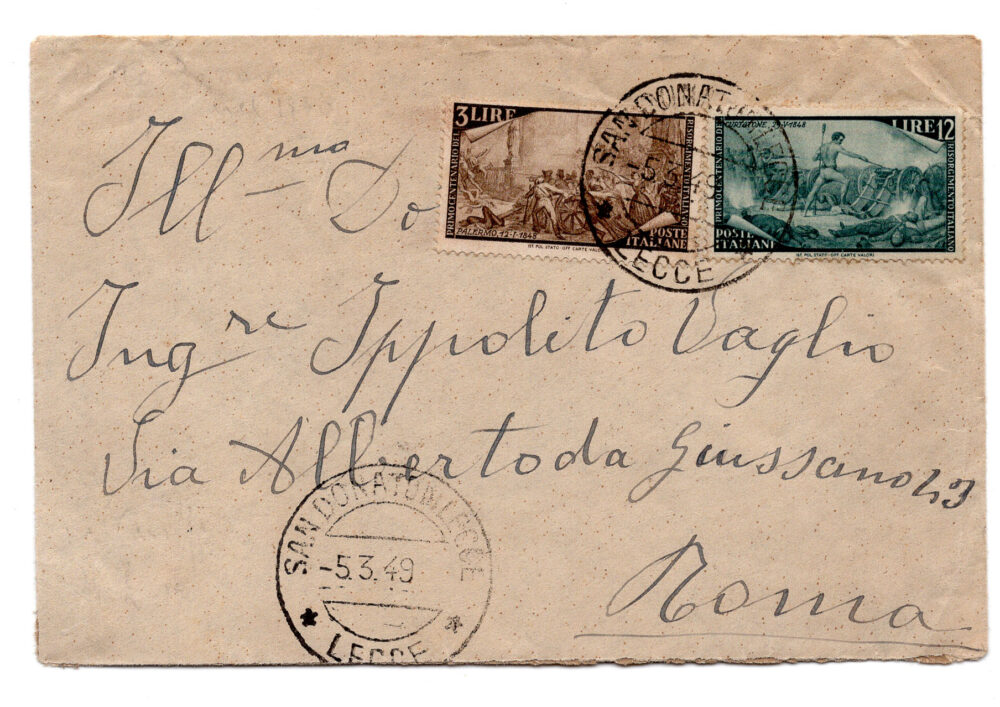 3 LIRE
PRIMO CENTENARIO DEL RISORGIMENTO ITALIANO
PALERMO-12-1-1848
POSTE ITALIANE
IST. POL. STATO-OFF. CARTE VALORI
CURTATONE, 29-V-1848
LIRE 12
PRIMO CENTENARIO DEL RISORGIMENTO ITALIANO
POSTE ITALIANI
IST. POL. STATO-OFF. CARTE VALORI
SAN DONATO
LECCE
Ill ma Do
Ing re Ippolito Vaglio
Via Alberto da Giussano 23
Roma
SAN DONATO DI LECCE
-5.3.49
* LECCE *